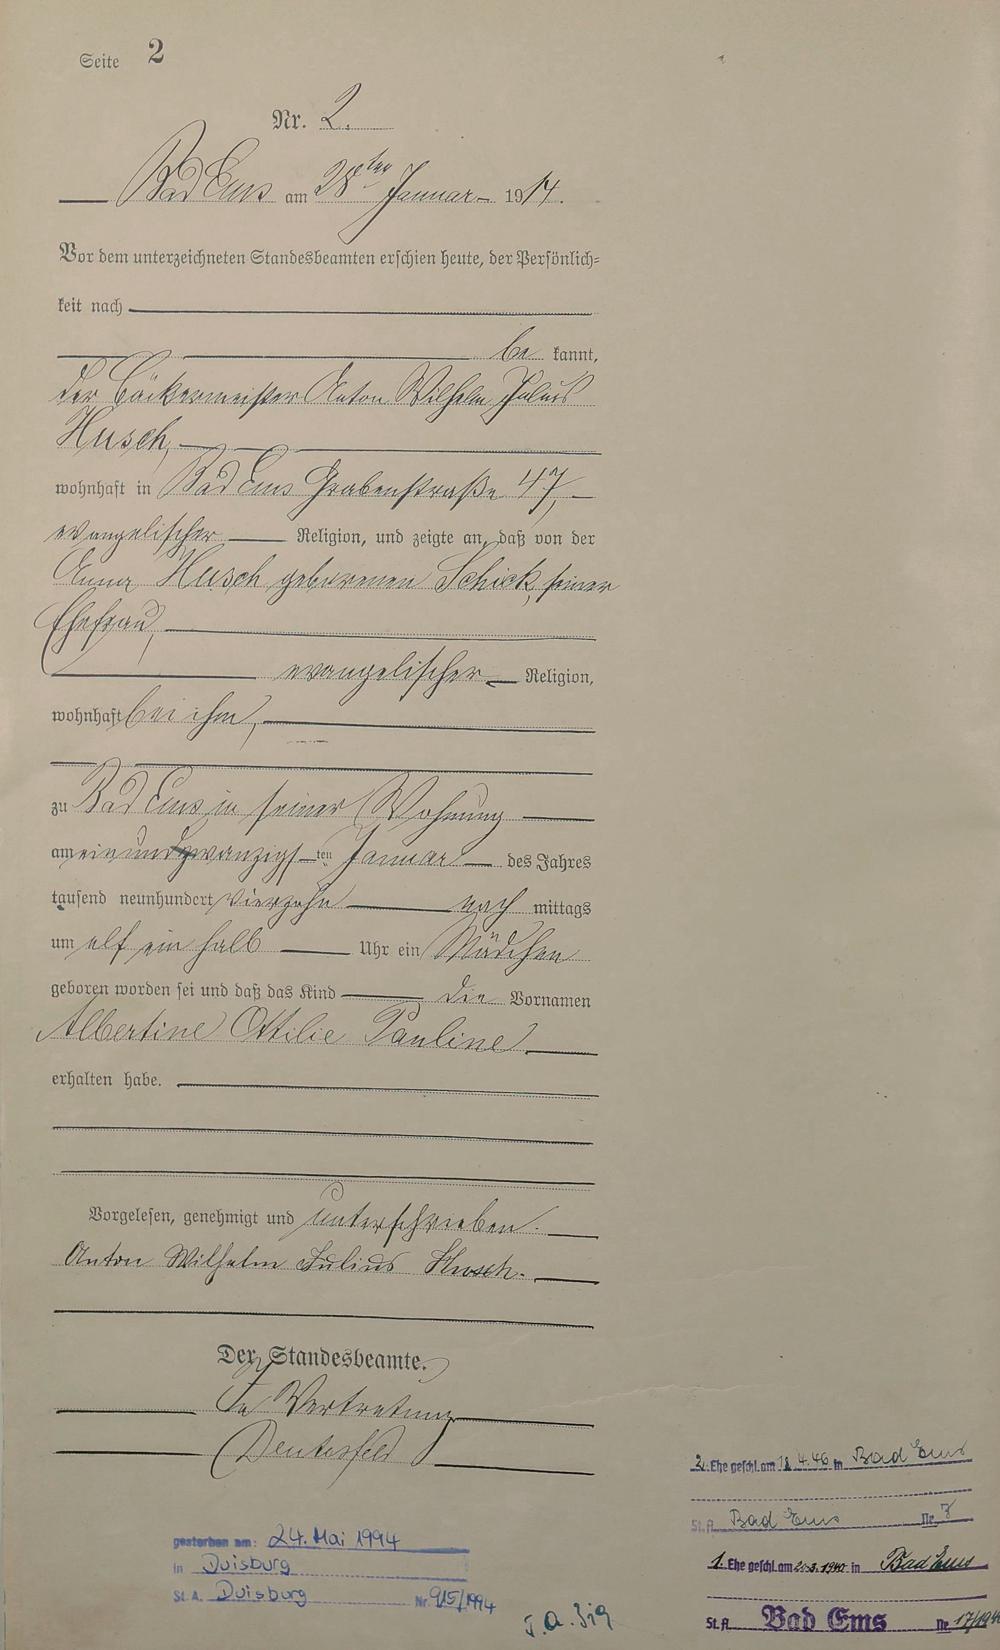 Seite 2
Nr. 2.
Bad Ems am 28ten Januar 1914.
Vor dem unterzeichneten Standesbeamten erschien heute, der Persönlich=
keit nach
be kannt,
der Bäckermeister Anton Wilhelm Julius
Husch,
wohnhaft in Bad Ems Grabenstraße 47,
evangelischer Religion, und zeigte an, daß von der
Anna Husch geborenen Schick, seiner
Ehefrau,
evangelischer Religion,
wohnhaft bei ihm,
zu Bad Ems in seiner Wohnung
am einundzwanzigsten Januar des Jahres
tausend neunhundert vierzehn nach mittags
um elf ein halb Uhr ein Mädchen
geboren worden sei und daß das Kind die Vornamen
Albertine Ottilie Pauline
erhalten habe.
Vorgelesen, genehmigt und unterschrieben.
Anton Wilhelm Julius Husch.
Der Standesbeamte.
In Vertretung
2. Ehe geschl. am 4.46 in Bad Ems
St. A. Bad Ems Nr. 7
gestorben am: 24. Mai 1994
in Duisburg
St. A. Duisburg Nr. 915/1994
1. Ehe geschl. am 3.1940 in Bad Ems
St. A. Bad Ems Nr. 17/194